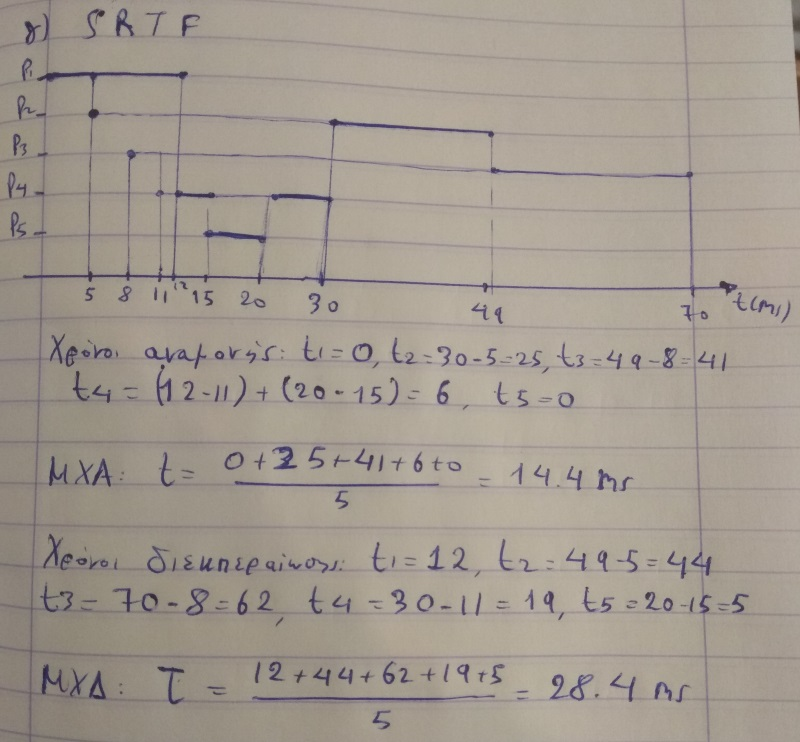 γ) SRTF
P1
P2
P3
P4
P5
5 8 11 12 15 20 30 49 70 t(ms)
Χρόνοι αναμονής: t1=0, t2=30-5=25, t3=49-8=41
t4 = (12-11)+(20-15)=6, t5=0
ΜΧΑ: t= 0+25+41+6+0 / 5 = 14.4 ms
Χρόνοι διεκπεραίωσης: t1=12, t2=49-5=44
t3=70-8=62, t4=30-11=19, t5=20-15=5
ΜΧΔ: T = 12+44+62+19+5 / 5 = 28.4 ms